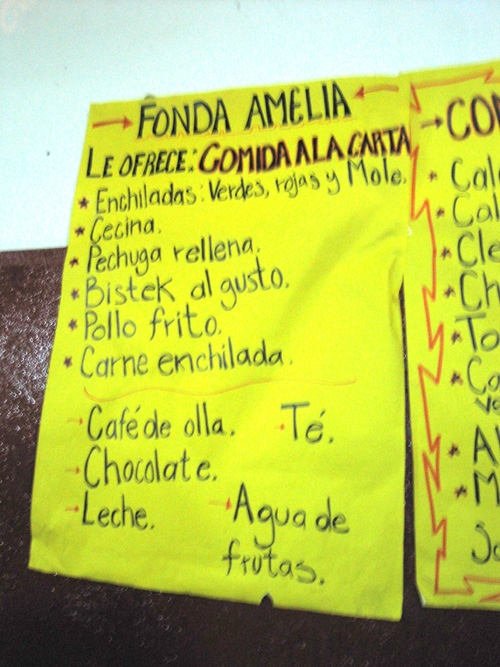 FONDA AMELIA
LE OFRECE: COMIDA A LA CARTA
* Enchiladas: Verdes, rojas y Mole.
* Cecina.
* Pechuga rellena.
* Bistek al gusto.
* Pollo frito.
* Carne enchilada.
→ Café de olla. → Té.
→ Chocolate.
→ Leche. → Agua de
frutas.